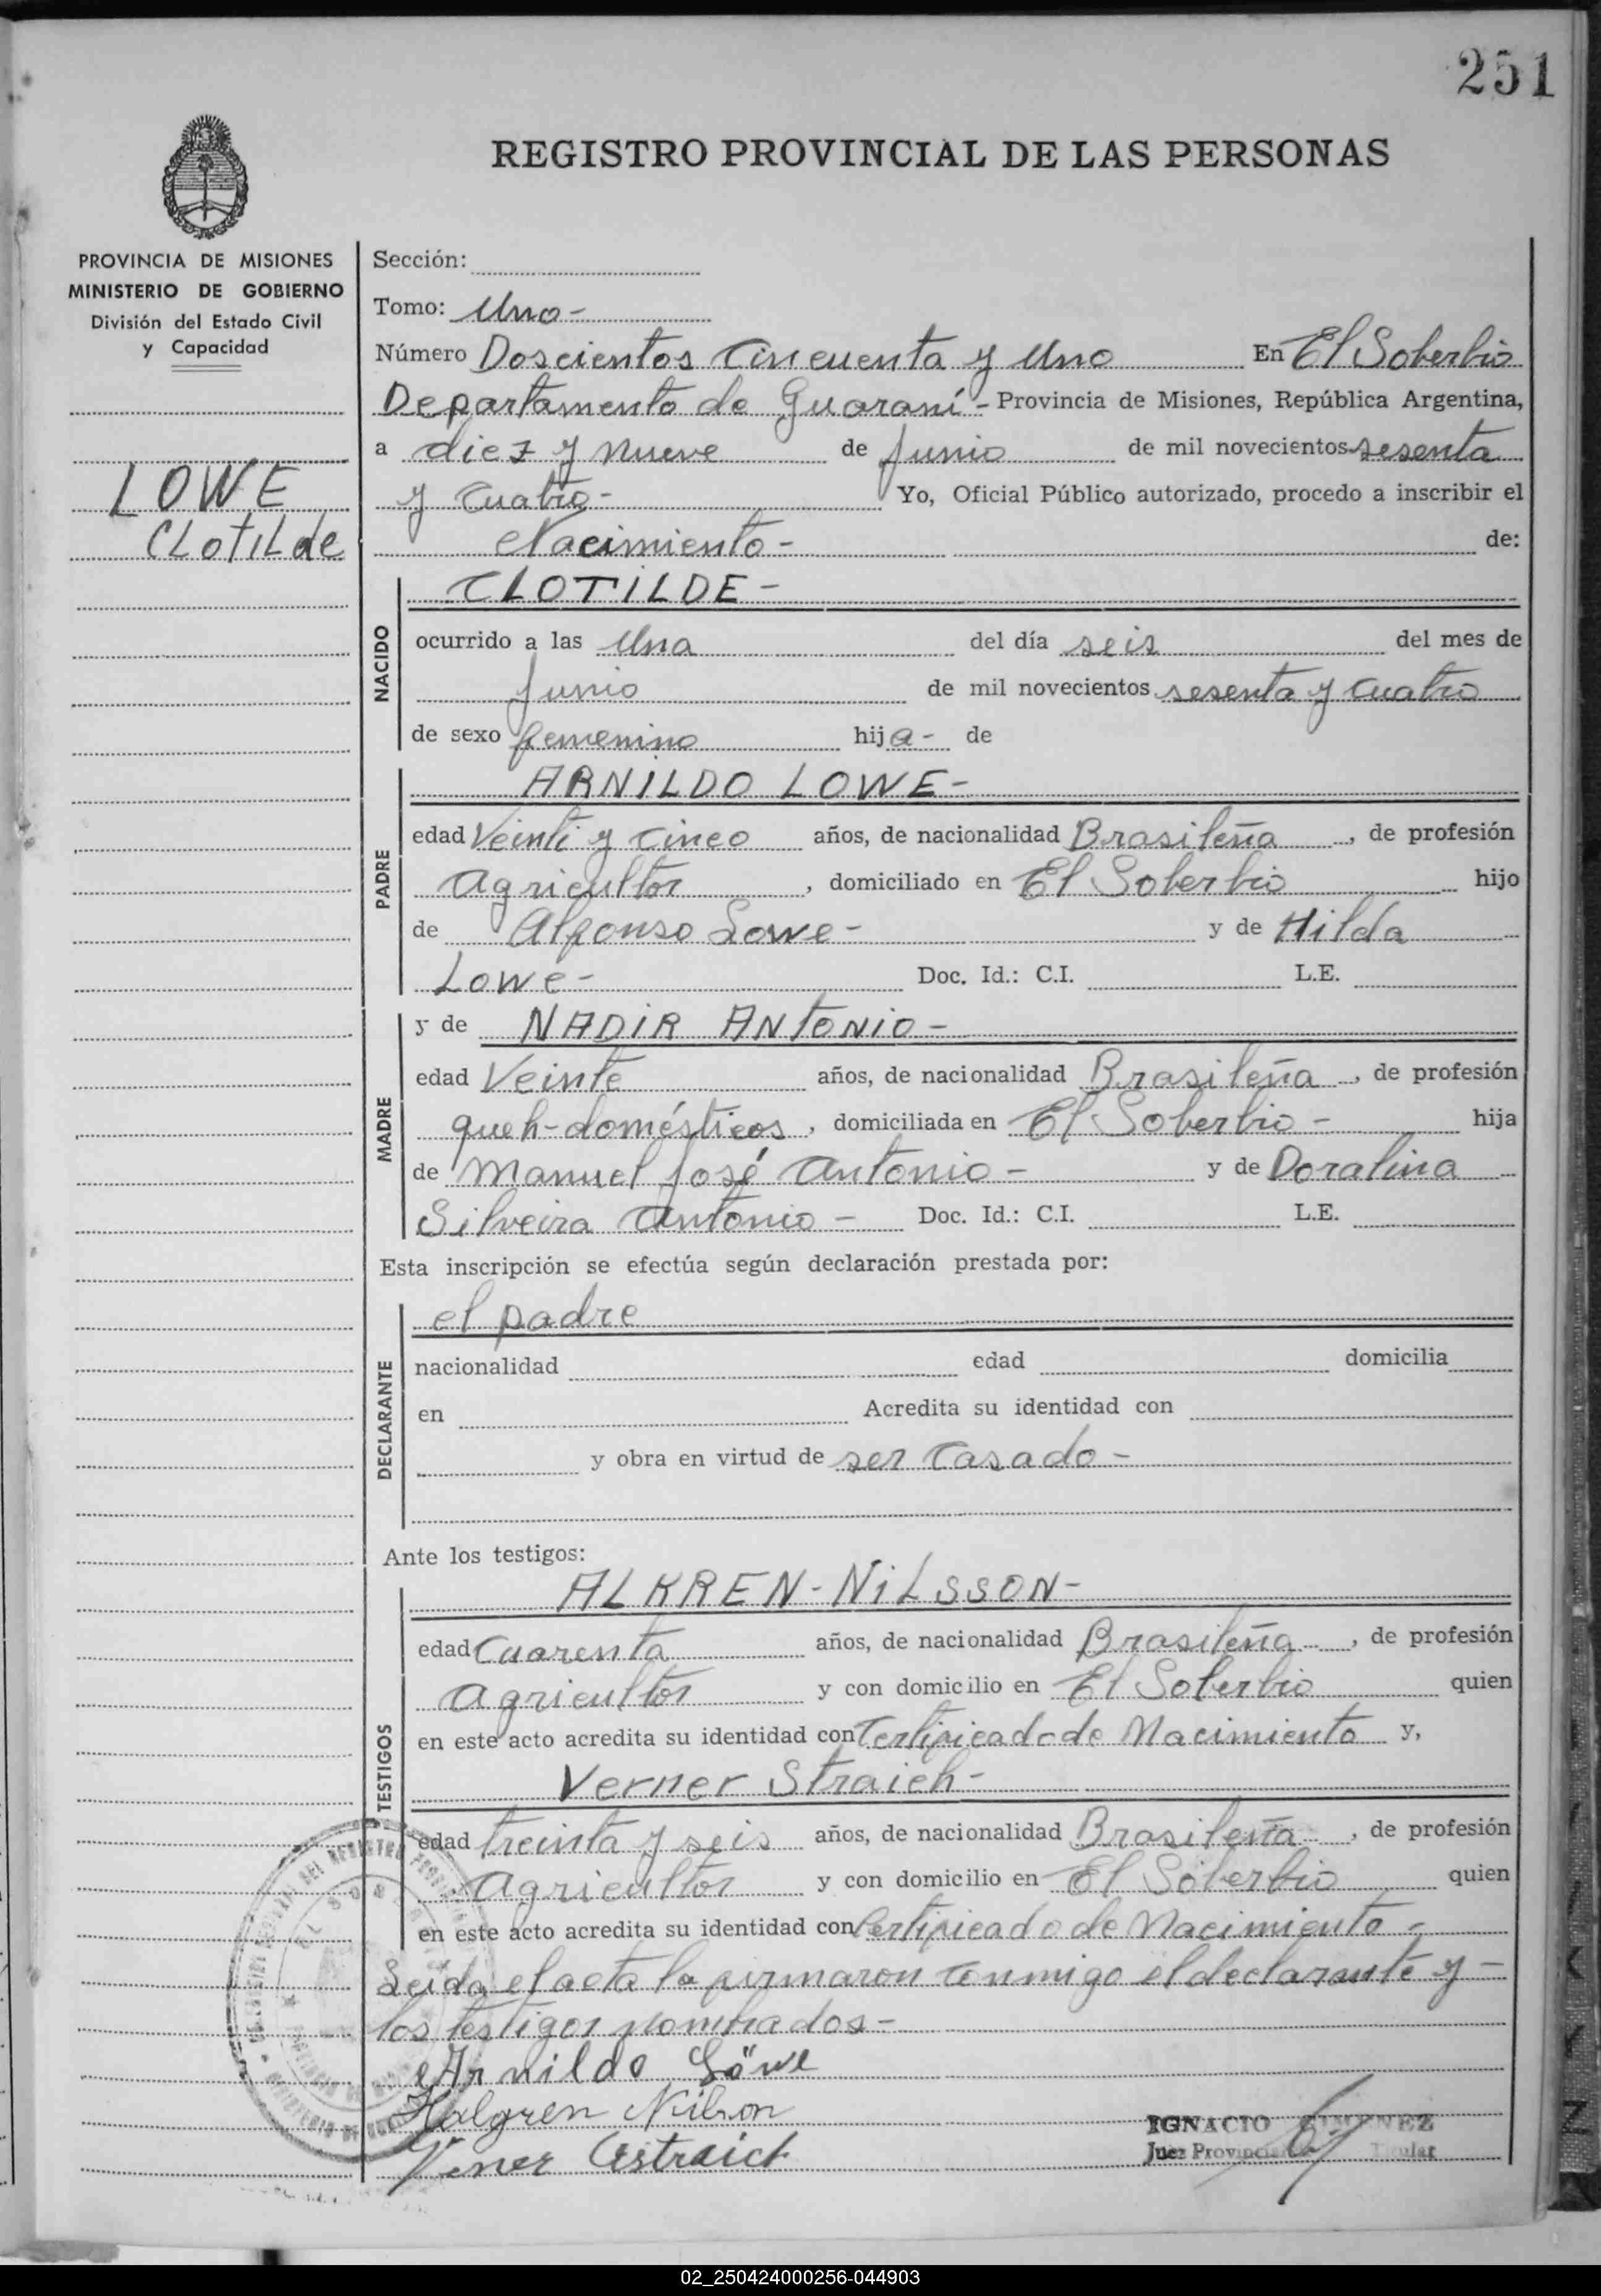 251
REGISTRO PROVINCIAL DE LAS PERSONAS
PROVINCIA DE MISIONES
MINISTERIO DE GOBIERNO
División del Estado Civil
y Capacidad
LOWE
CLOTILde
Sección:
Tomo: Uno-
Número Doscientos Cincuenta y Uno En El Soberbio
Departamento de Guaraní- Provincia de Misiones, República Argentina,
a diez y nueve de Junio de mil novecientos sesenta
y Cuatro- Yo, Oficial Público autorizado, procedo a inscribir el
Nacimiento- de:
NACIDO
CLOTILDE-
ocurrido a las Una del día seis del mes de
Junio de mil novecientos sesenta y Cuatro
de sexo femenino hija- de
PADRE
ARNILDO LOWE-
edad Veinti y Cinco años, de nacionalidad Brasileña, de profesión
Agricultor, domiciliado en El Soberbio hijo
de Alfonso Lowe- y de Hilda
Lowe- Doc. Id.: C.I. L.E.
MADRE
y de NADIR ANTONIO-
edad Veinte años, de nacionalidad Brasileña, de profesión
queh-domésticos, domiciliada en El Soberbio- hija
de Manuel José Antonio- y de Doralina
Silveira Antonio- Doc. Id.: C.I. L.E.
Esta inscripción se efectúa según declaración prestada por:
DECLARANTE
el padre
nacionalidad edad domicilia
en Acredita su identidad con
y obra en virtud de ser Casado-
Ante los testigos:
TESTIGOS
ALKREN-NiLSSON-
edad Cuarenta años, de nacionalidad Brasileña, de profesión
Agricultor y con domicilio en El Soberbio quien
en este acto acredita su identidad con Certificado de Nacimiento y,
Verner Straich-
edad treinta y seis años, de nacionalidad Brasileña, de profesión
Agricultor y con domicilio en El Soberbio quien
en este acto acredita su identidad con Certificado de Nacimiento-
Leida el acta la firmaron Conmigo el declarante y-
los testigos nombrados-
Arnildo Löwe
Halgren Nilson
Vener Estraich
IGNACIO GIMENEZ
Juez Provincial Titular
02_250424000256-044903